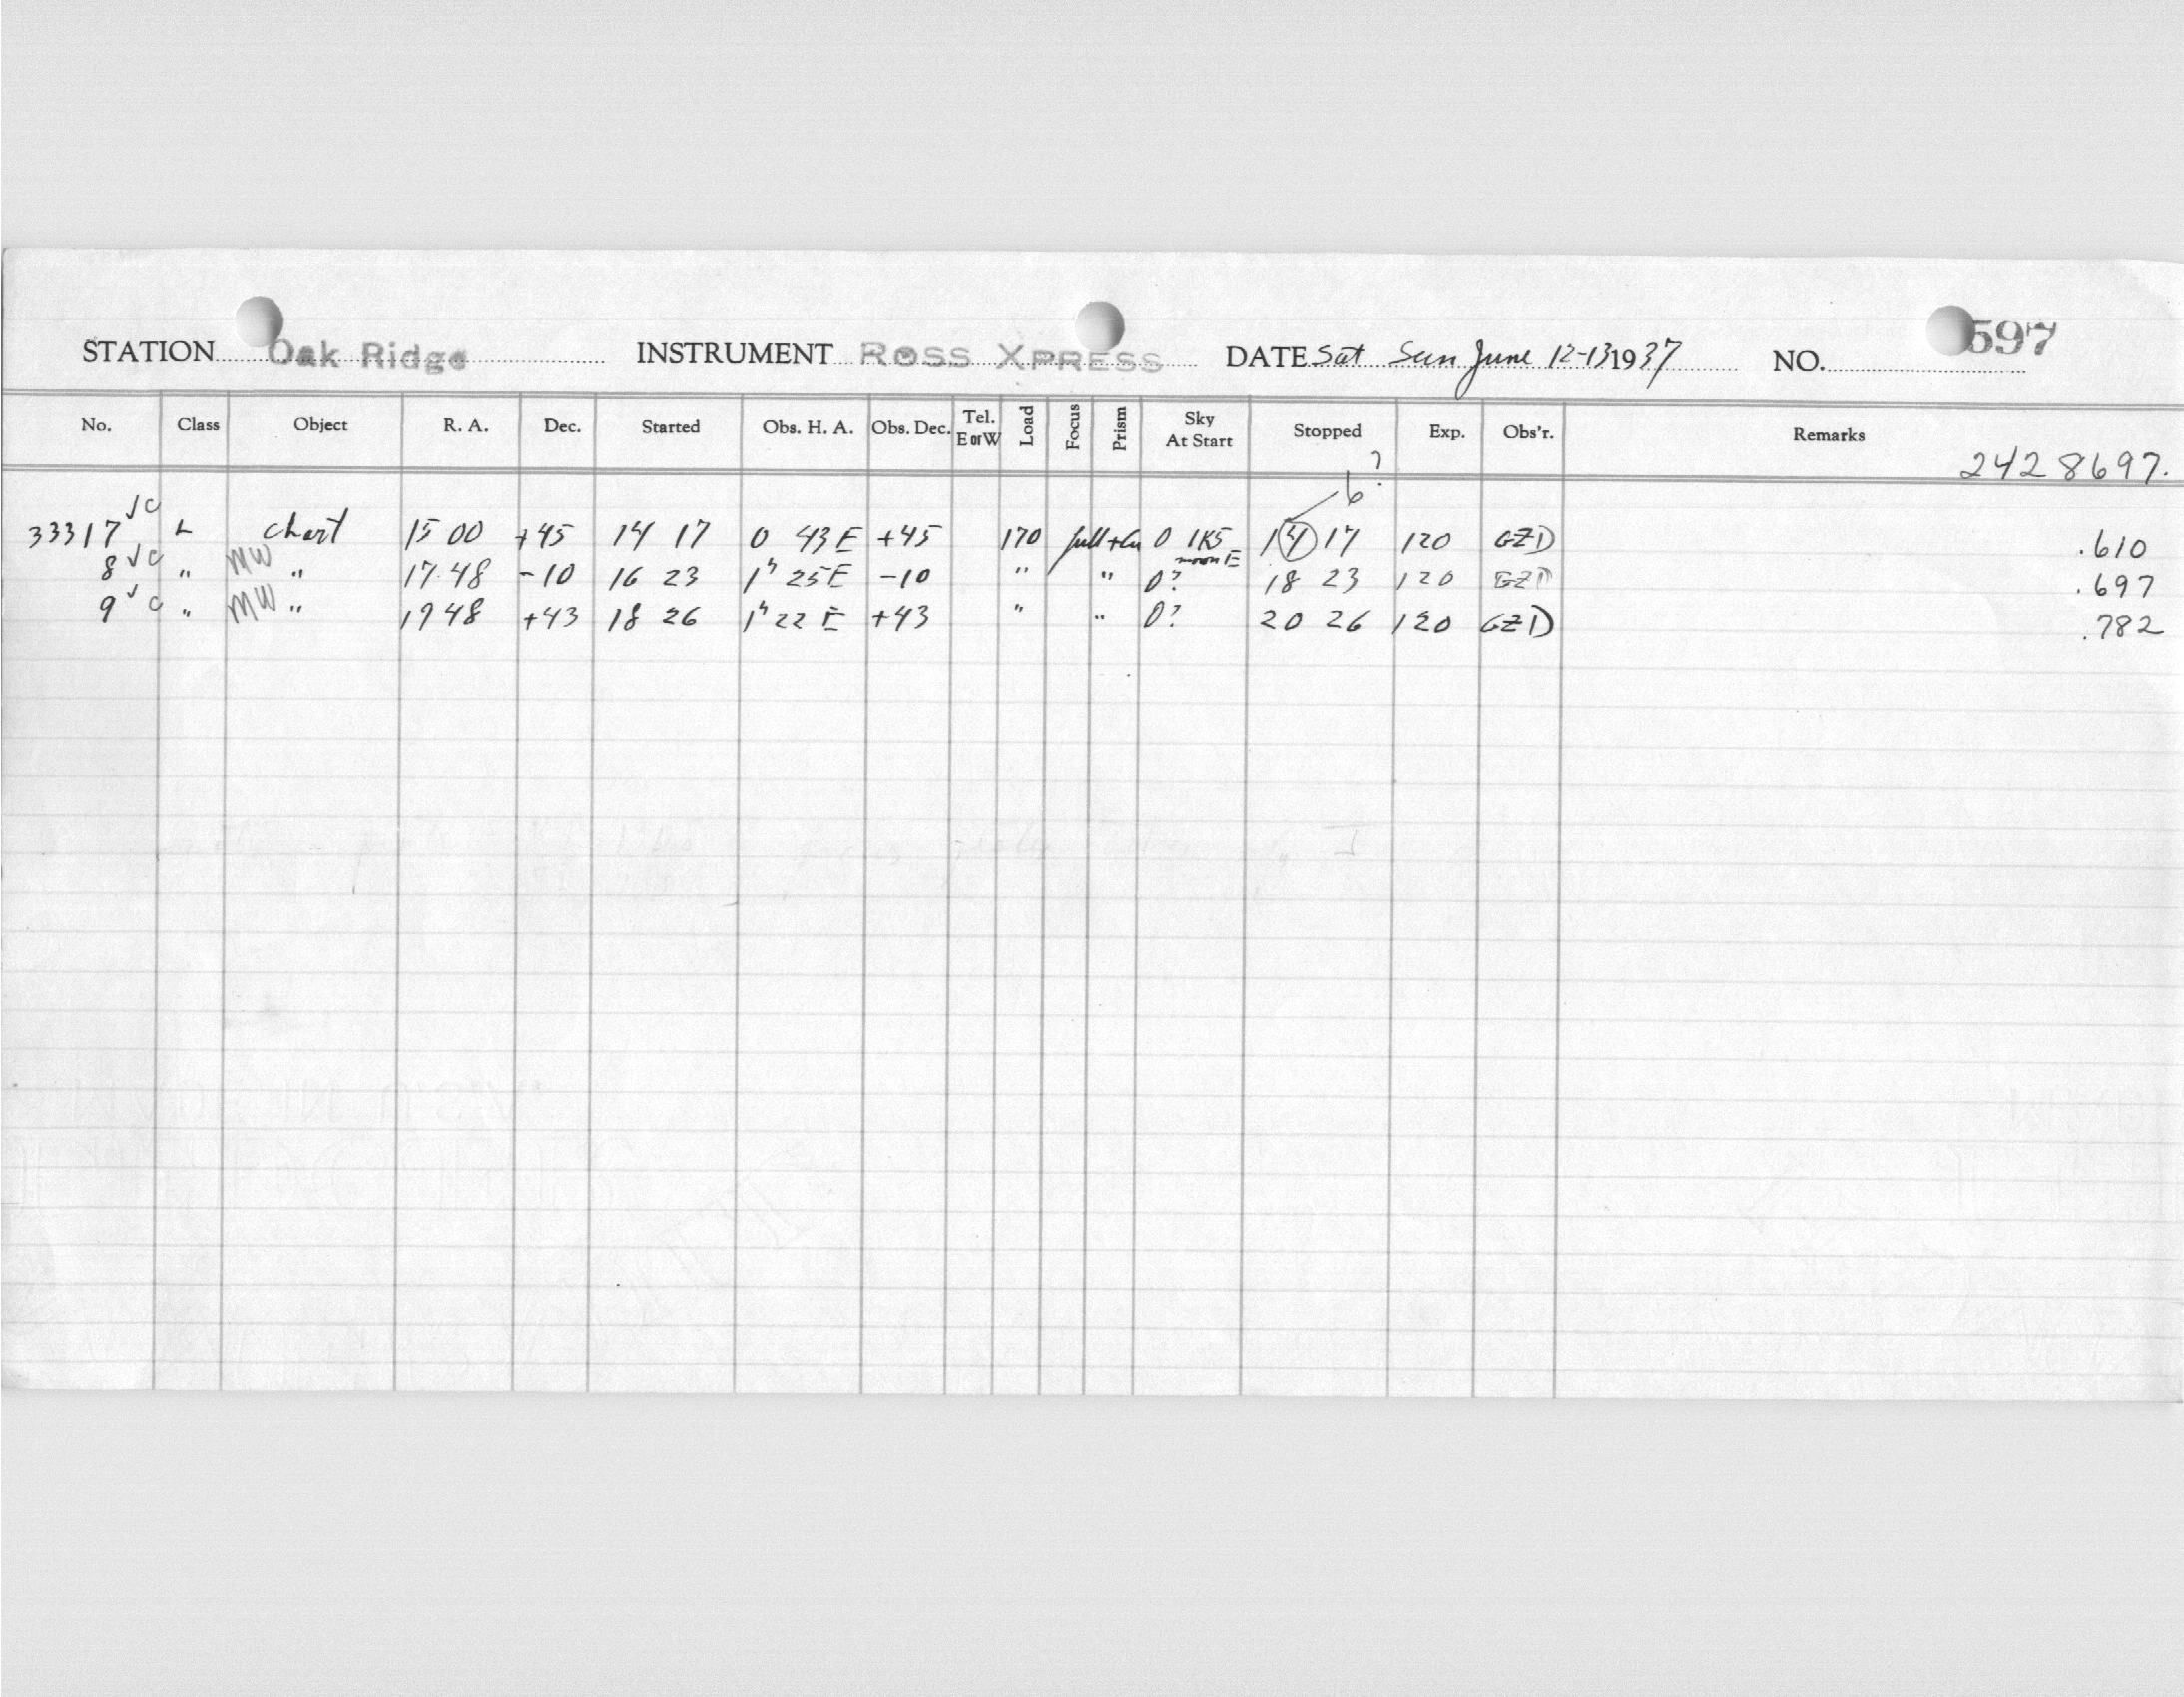 STATION Oak Ridge INSTRUMENT ROSS XPRESS DATE Sat Sun June 12-13 1937 NO. 597
No. Class Object R. A. Dec. Started Obs. H. A. Obs. Dec. Tel. E or W Load Focus Prism Sky At Start Stopped Exp. Obs'r. Remarks
2428697.
6?
33317 √c L chart 15 00 +45 14 17 0 43 E +45 170 0 1K5 14 17 120 GZD .610
moon E
8 √c " MW " 17 48 -10 16 23 1h 25 E -10 " " 0? 18 23 120 GZD .697
9 √c " MW " 19 48 +43 18 26 1h 22 E +43 " " 0? 20 26 120 GZD .782